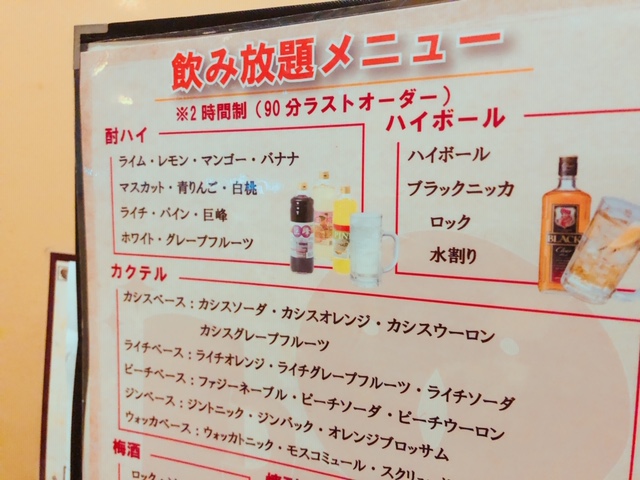 飲み放題メニュー
※2時間制（90分ラストオーダー）
酎ハイ
ライム・レモン・マンゴー・バナナ
マスカット・青りんご・白桃
ライチ・パイン・巨峰
ホワイト・グレープフルーツ
ハイボール
ハイボール
ブラックニッカ
ロック
水割り
BLACK
カクテル
カシスベース：カシスソーダ・カシスオレンジ・カシスウーロン
カシスグレープフルーツ
ライチベース：ライチオレンジ・ライチグレープフルーツ・ライチソーダ
ピーチベース：ファジーネーブル・ピーチソーダ・ピーチウーロン
ジンベース：ジントニック・ジンバック・オレンジブロッサム
ウォッカベース：ウォッカトニック・モスコミュール・スクリュー
梅酒
ロック・